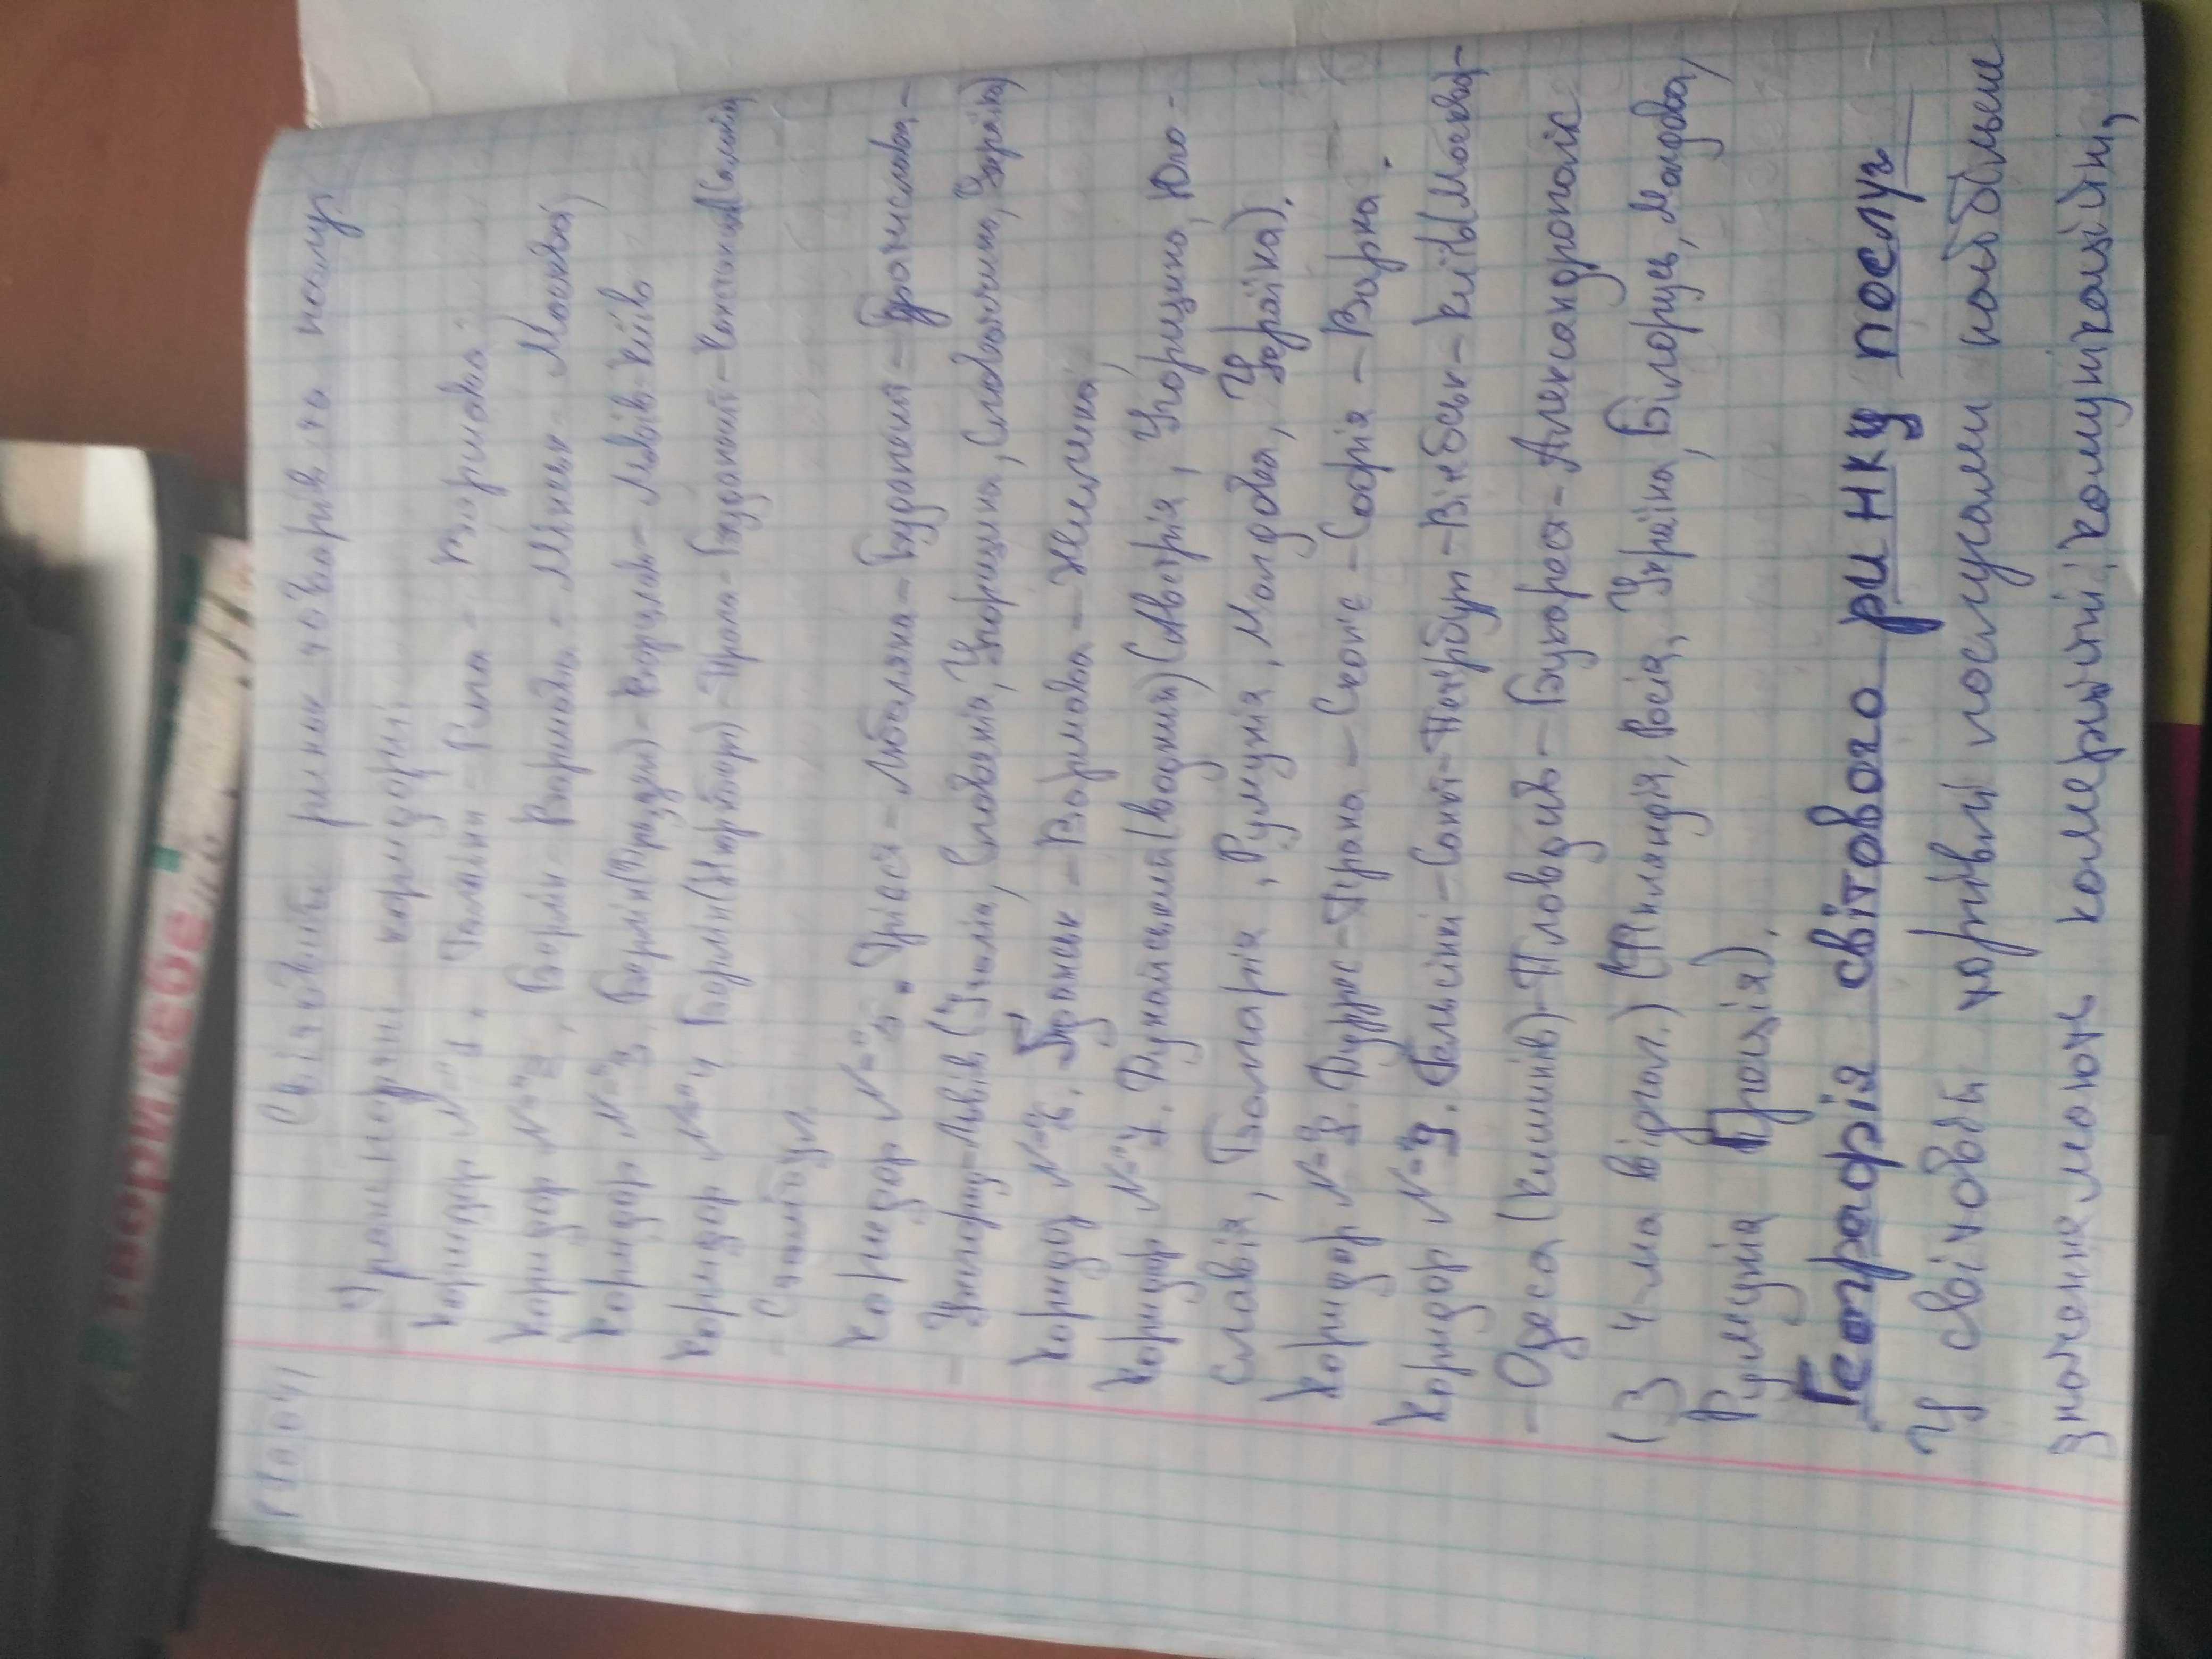 Світовий ринок товарів та послуг
Транспортні коридори
Коридор №1. Таллінн – Рига – Варшава.
Коридор №2. Берлін – Варшава – Мінськ – Москва,
Коридор №3 Берлін(Дрезден) – Вроцлав – Львів – Київ
Коридор №4 Берлін(Нюрнберг) – Прага – Будапешт –
– Стамбул
Коридор №5. Трієст – Любляна – Будапешт – Братислава –
– Ужгород – Львів (Італія, Словенія, Угорщина, Словаччина, Україна)
Коридор №6. Гданськ – Варшава – Жиліна,
Коридор №7. Дунайський (водний) (Австрія, Угорщина, Юго-
славія, Болгарія, Румунія, Молдова, Україна).
Коридор №8. Дуррес – Тірана – Скоп'є – Софія – Варна.
Коридор №9. Гельсінкі – Санкт-Петербург – Вітебськ – Київ(Москва) –
– Одеса (Кишинів) – Пловдив – Бухарест – Александрополіс
(З 4-ма відгал.) (Фінляндія, Росія, Україна, Білорусь, Молдова,
Румунія Греція).
Географія світового ринку послуг
У світовій торгівлі послугами найбільше
значення мають комерційні, комунікаційні,
твори себе